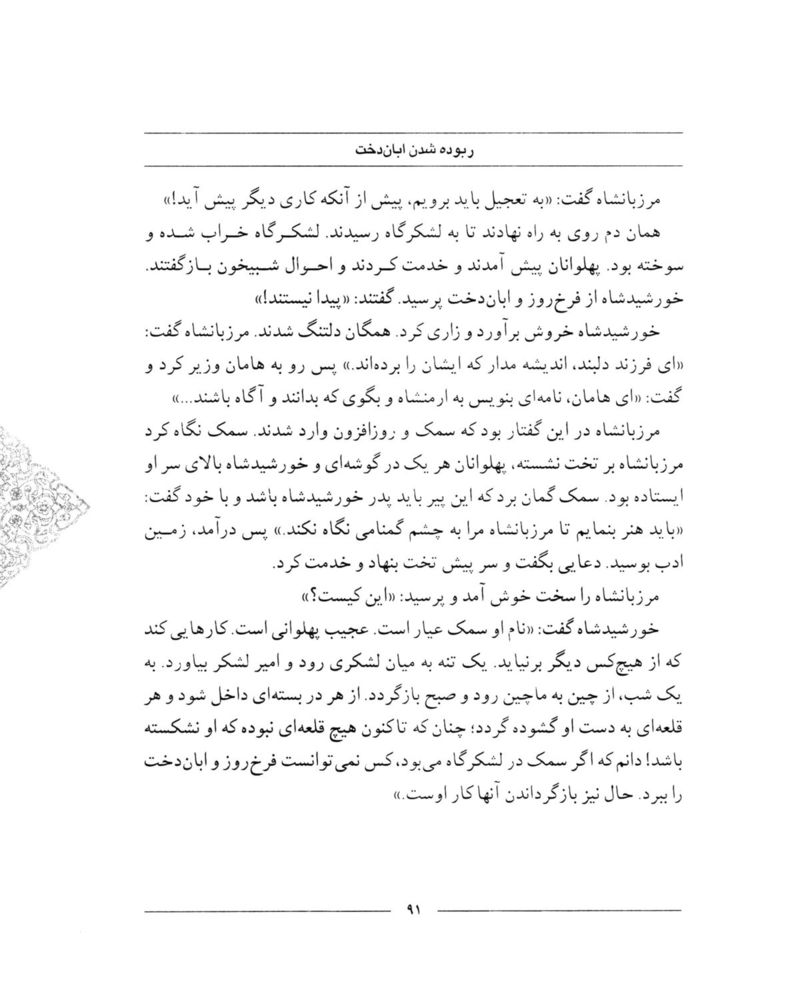 ربوده شدن ابان‌دخت
مرزبانشاه گفت: «به تعجیل باید برویم، پیش از آنکه کاری دیگر پیش آید!»
همان دم روی به راه نهادند تا به لشکرگاه رسیدند. لشکرگاه خراب شده و
سوخته بود. پهلوانان پیش آمدند و خدمت کردند و احوال شبیخون بازگفتند.
خورشیدشاه از فرخ‌روز و ابان‌دخت پرسید. گفتند: «پیدا نیستند!»
خورشیدشاه خروش برآورد و زاری کرد. همگان دلتنگ شدند. مرزبانشاه گفت:
«ای فرزند دلبند، اندیشه مدار که ایشان را برده‌اند.» پس رو به هامان وزیر کرد و
گفت: «ای هامان، نامه‌ای بنویس به ارمنشاه و بگوی که بدانند و آگاه باشند...»
مرزبانشاه در این گفتار بود که سمک و روزافزون وارد شدند. سمک نگاه کرد
مرزبانشاه بر تخت نشسته، پهلوانان هر یک در گوشه‌ای و خورشیدشاه بالای سر او
ایستاده بود. سمک گمان برد که این پیر باید پدر خورشیدشاه باشد و با خود گفت:
«باید هنر بنمایم تا مرزبانشاه مرا به چشم گمنامی نگاه نکند.» پس درآمد، زمین
ادب بوسید. دعایی بگفت و سر پیش تخت بنهاد و خدمت کرد.
مرزبانشاه را سخت خوش آمد و پرسید: «این کیست؟»
خورشیدشاه گفت: «نام او سمک عیار است. عجیب پهلوانی است. کارهایی کند
که از هیچ‌کس دیگر برنیاید. یک تنه به میان لشکری رود و امیر لشکر بیاورد. به
یک شب، از چین به ماچین رود و صبح بازگردد. از هر در بسته‌ای داخل شود و هر
قلعه‌ای به دست او گشوده گردد؛ چنان که تاکنون هیچ قلعه‌ای نبوده که او نشکسته
باشد! دانم که اگر سمک در لشکرگاه می‌بود، کس نمی‌توانست فرخ‌روز و ابان‌دخت
را ببرد. حال نیز بازگرداندن آنها کار اوست.»
۹۱